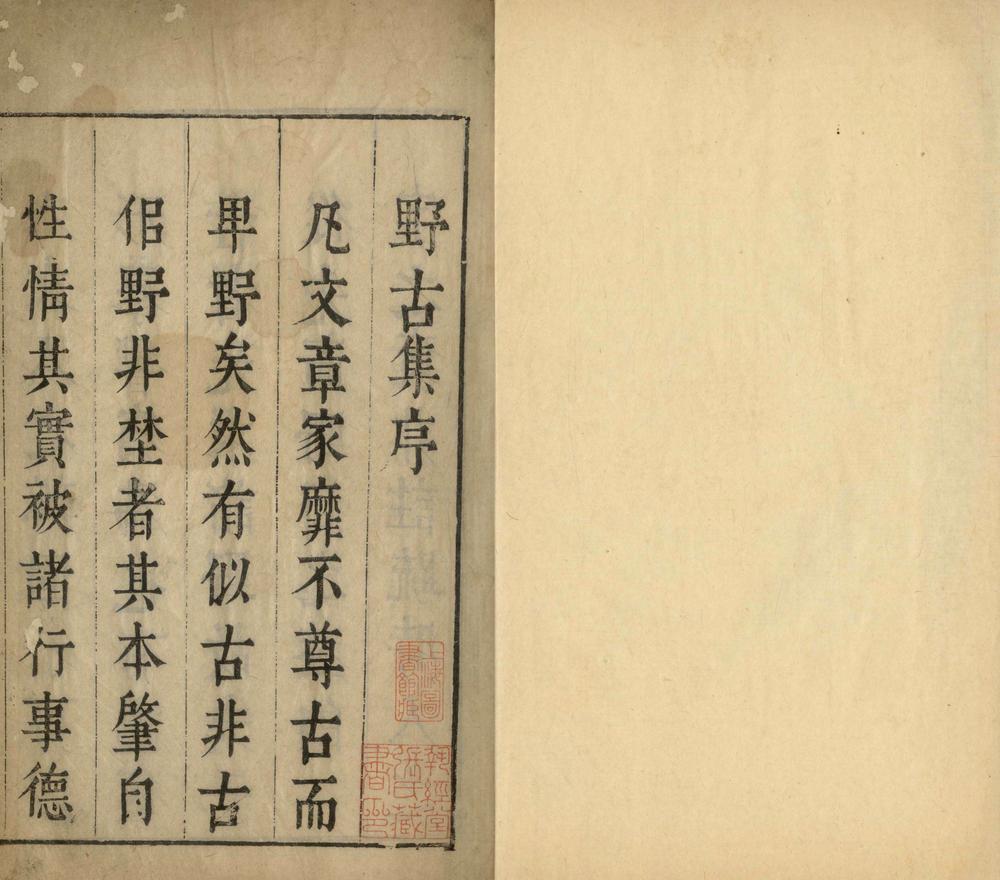 野古集序
凡文章家靡不尊古而
卑野矣然有似古非古
佀野非埜者其本肇自
性情其實被諸行事德
上海圖
書館藏
經堂
張氏藏
書印